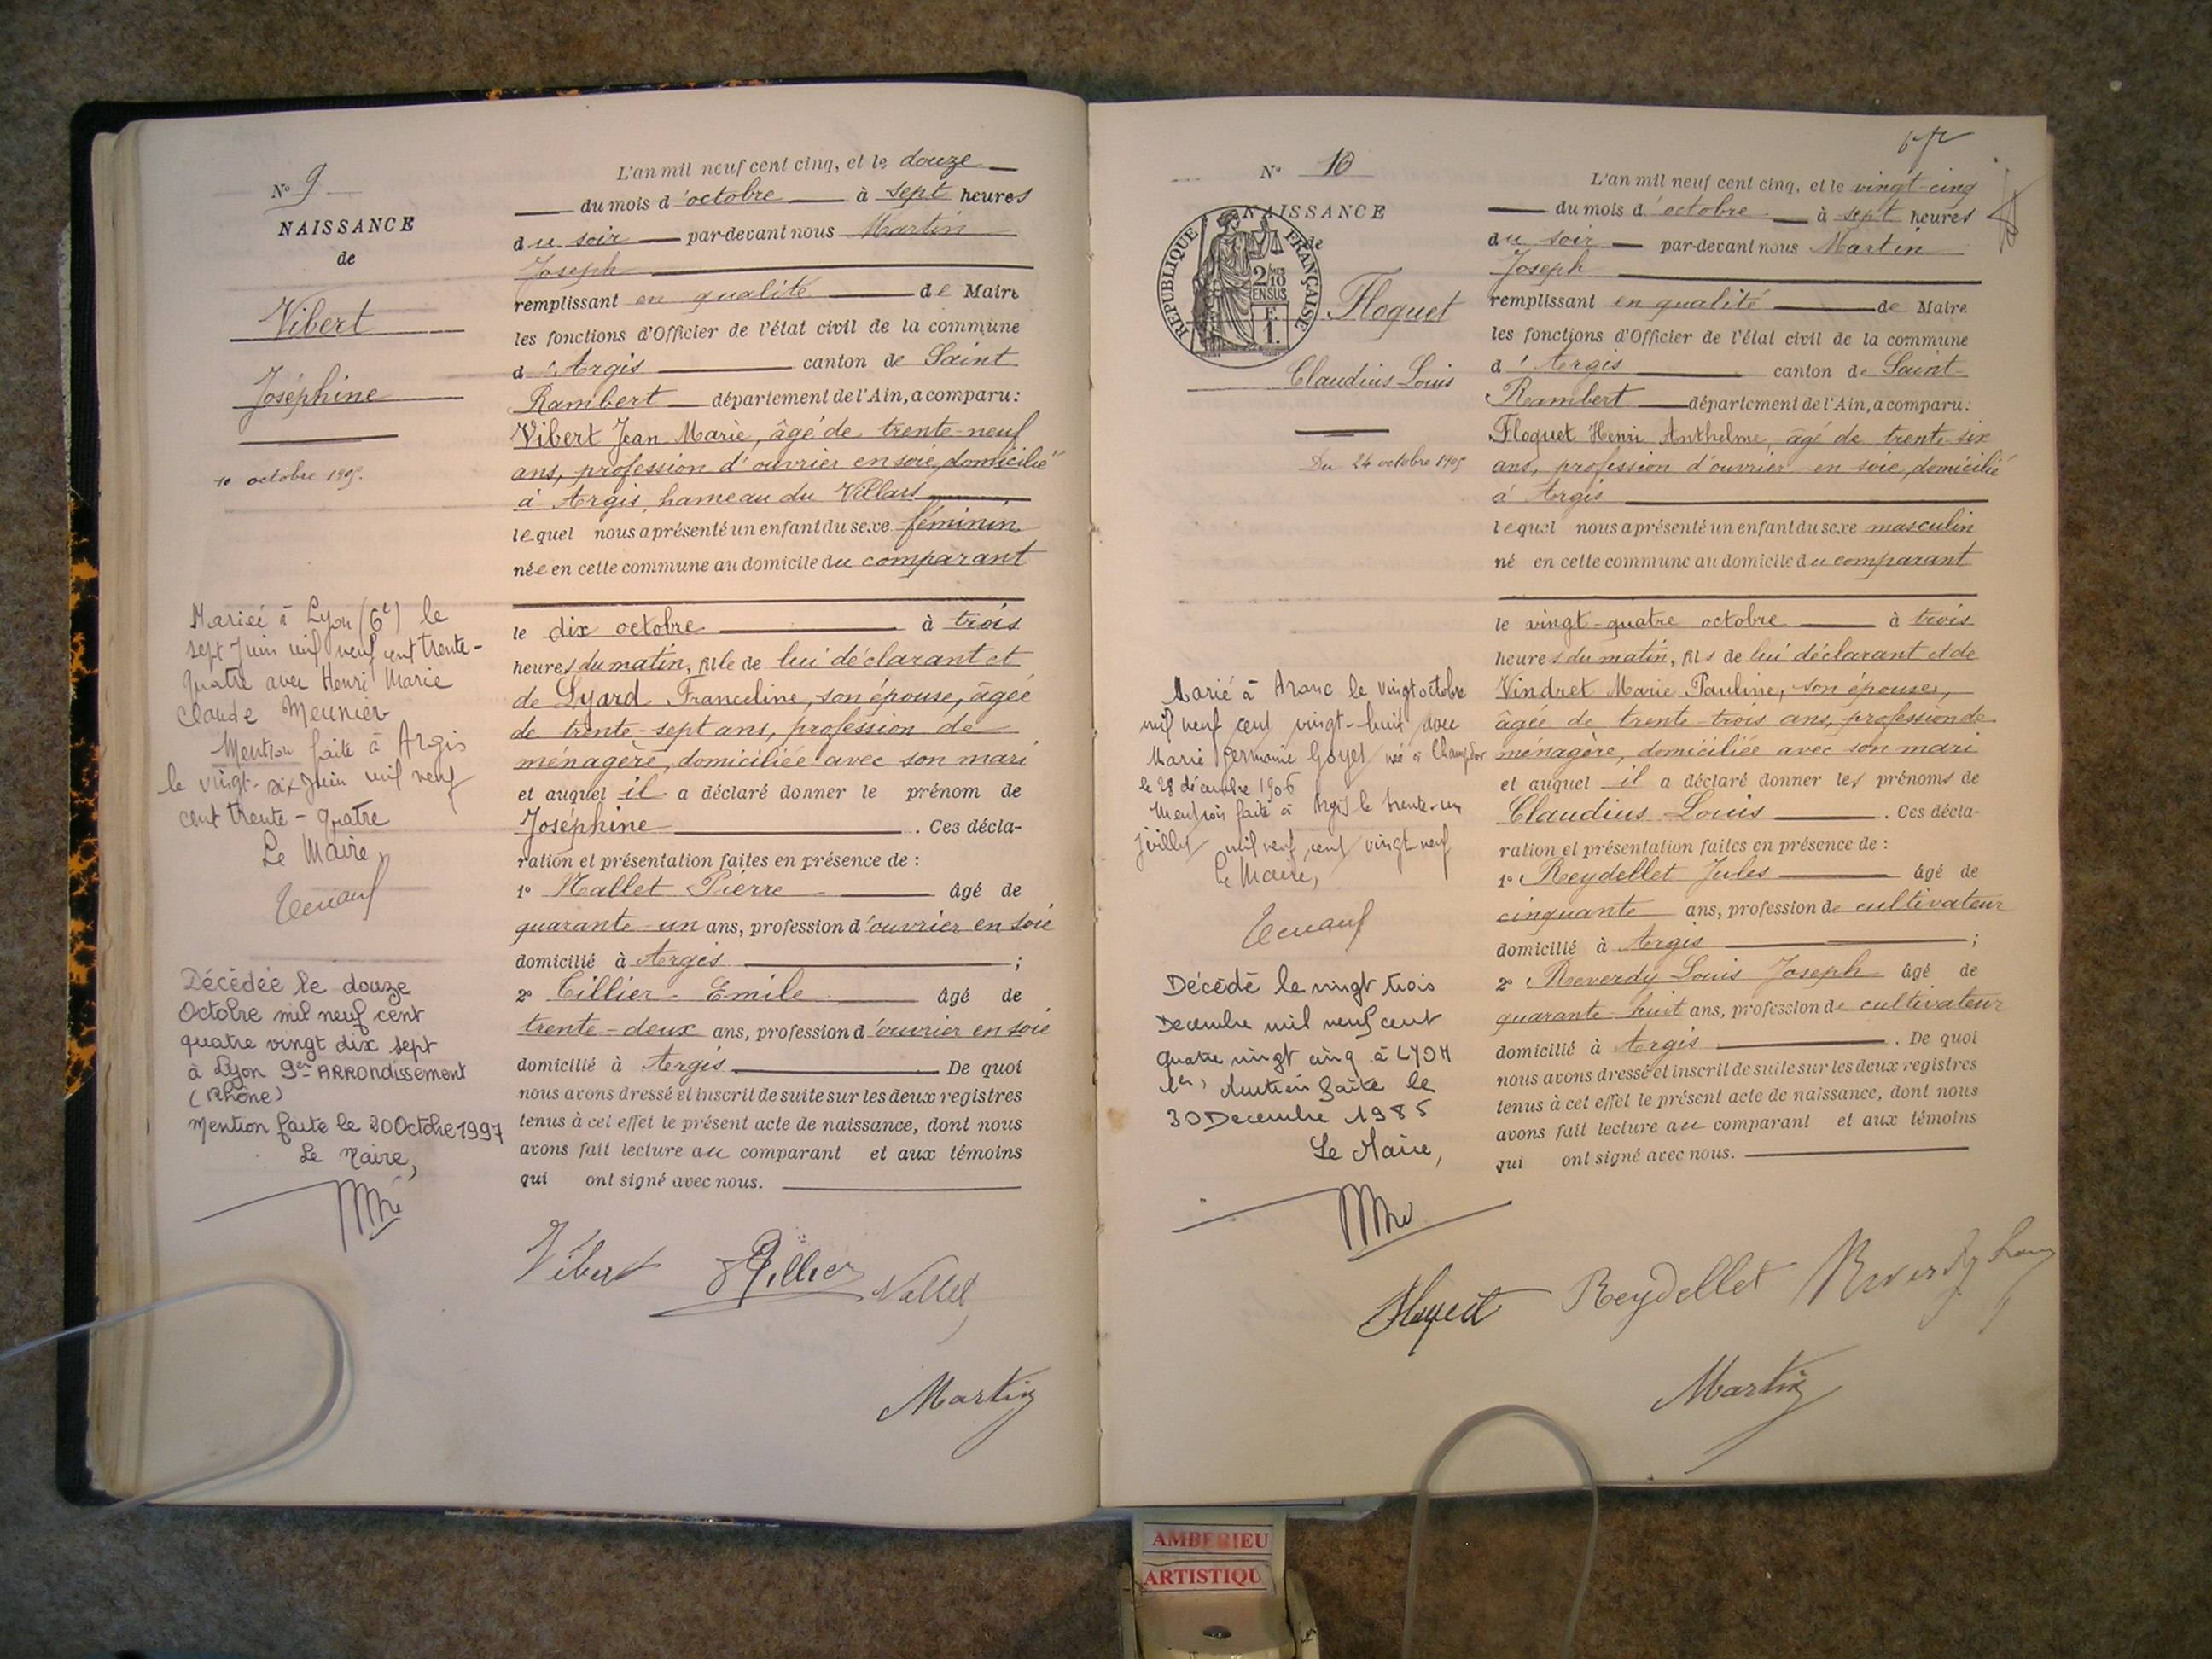 N° 9
NAISSANCE
de
Vibert
Joséphine
10 octobre 1905.
Mariée à Lyon (6e) le
sept Juin mil neuf cent trente-
quatre avec Henri Marie
Claude Meunier
Mention faite à Argis
le vingt-six Juin mil neuf
cent trente-quatre
Le Maire,
Décédée le douze
Octobre mil neuf cent
quatre vingt dix sept
à Lyon 9er ARRONdissement
(Rhône)
Mention faite le 20 Octobre 1997
Le Maire,
L'an mil neuf cent cinq, et le douze
du mois d'octobre à sept heures
du soir par-devant nous Martin
Joseph
remplissant en qualité de Maire
les fonctions d'Officier de l'état civil de la commune
d'Argis canton de Saint
Rambert département de l'Ain, a comparu:
Vibert Jean Marie, âgé de trente-neuf
ans, profession d'ouvrier en soie, domicilié
à Argis, hameau du Villars
lequel nous a présenté un enfant du sexe féminin
née en cette commune au domicile du comparant
le dix octobre à trois
heures du matin, fille de lui déclarant et
de Lyard Franceline, son épouse, âgée
de trente-sept ans, profession de
ménagère, domiciliée avec son mari
et auquel il a déclaré donner le prénom de
Joséphine. Ces décla-
ration et présentation faites en présence de :
1° Nallet Pierre âgé de
quarante-un ans, profession d'ouvrier en soie
domicilié à Argis ;
2° Tillier Emile âgé de
trente-deux ans, profession d'ouvrier en soie
domicilié à Argis. De quoi
nous avons dressé et inscrit de suite sur les deux registres
tenus à cet effet le présent acte de naissance, dont nous
avons fait lecture au comparant et aux témoins
qui ont signé avec nous.
Vibert Tillier Nallet
Martin
N° 10
NAISSANCE
de
REPUBLIQUE FRANÇAISE
2/10
EN SUS
F.
1.
Floquet
Claudius Louis
Du 24 octobre 1905
Marié à Aranc le vingt octobre
mil neuf cent vingt-huit avec
Marie Germaine Goyet née à Champdor
le 28 décembre 1906
Mention faite à Argis le trente-un
juillet mil neuf cent vingt neuf
Le Maire,
Décédé le vingt trois
Decembre mil neuf cent
quatre vingt cinq à LYON
1er, Mention faite le
30 Decembre 1985
Le Maire,
L'an mil neuf cent cinq, et le vingt-cinq
du mois d'octobre à sept heures
du soir par-devant nous Martin
Joseph
remplissant en qualité de Maire
les fonctions d'Officier de l'état civil de la commune
d'Argis canton de Saint-
Rambert département de l'Ain, a comparu:
Floquet Henri Anthelme, âgé de trente-six
ans, profession d'ouvrier en soie, domicilié
à Argis
lequel nous a présenté un enfant du sexe masculin
né en cette commune au domicile du comparant
le vingt-quatre octobre à trois
heures du matin, fils de lui déclarant et de
Vindret Marie Pauline, son épouse,
âgée de trente-trois ans, profession de
ménagère, domiciliée avec son mari
et auquel il a déclaré donner les prénoms de
Claudius Louis. Ces décla-
ration et présentation faites en présence de :
1° Reydellet Jules âgé de
cinquante ans, profession de cultivateur
domicilié à Argis ;
2° Reverdy Louis Joseph âgé de
quarante-huit ans, profession de cultivateur
domicilié à Argis. De quoi
nous avons dressé et inscrit de suite sur les deux registres
tenus à cet effet le présent acte de naissance, dont nous
avons fait lecture au comparant et aux témoins
qui ont signé avec nous.
Floquet Reydellet Reverdy
Martin
AMBERIEU
ARTISTIQU